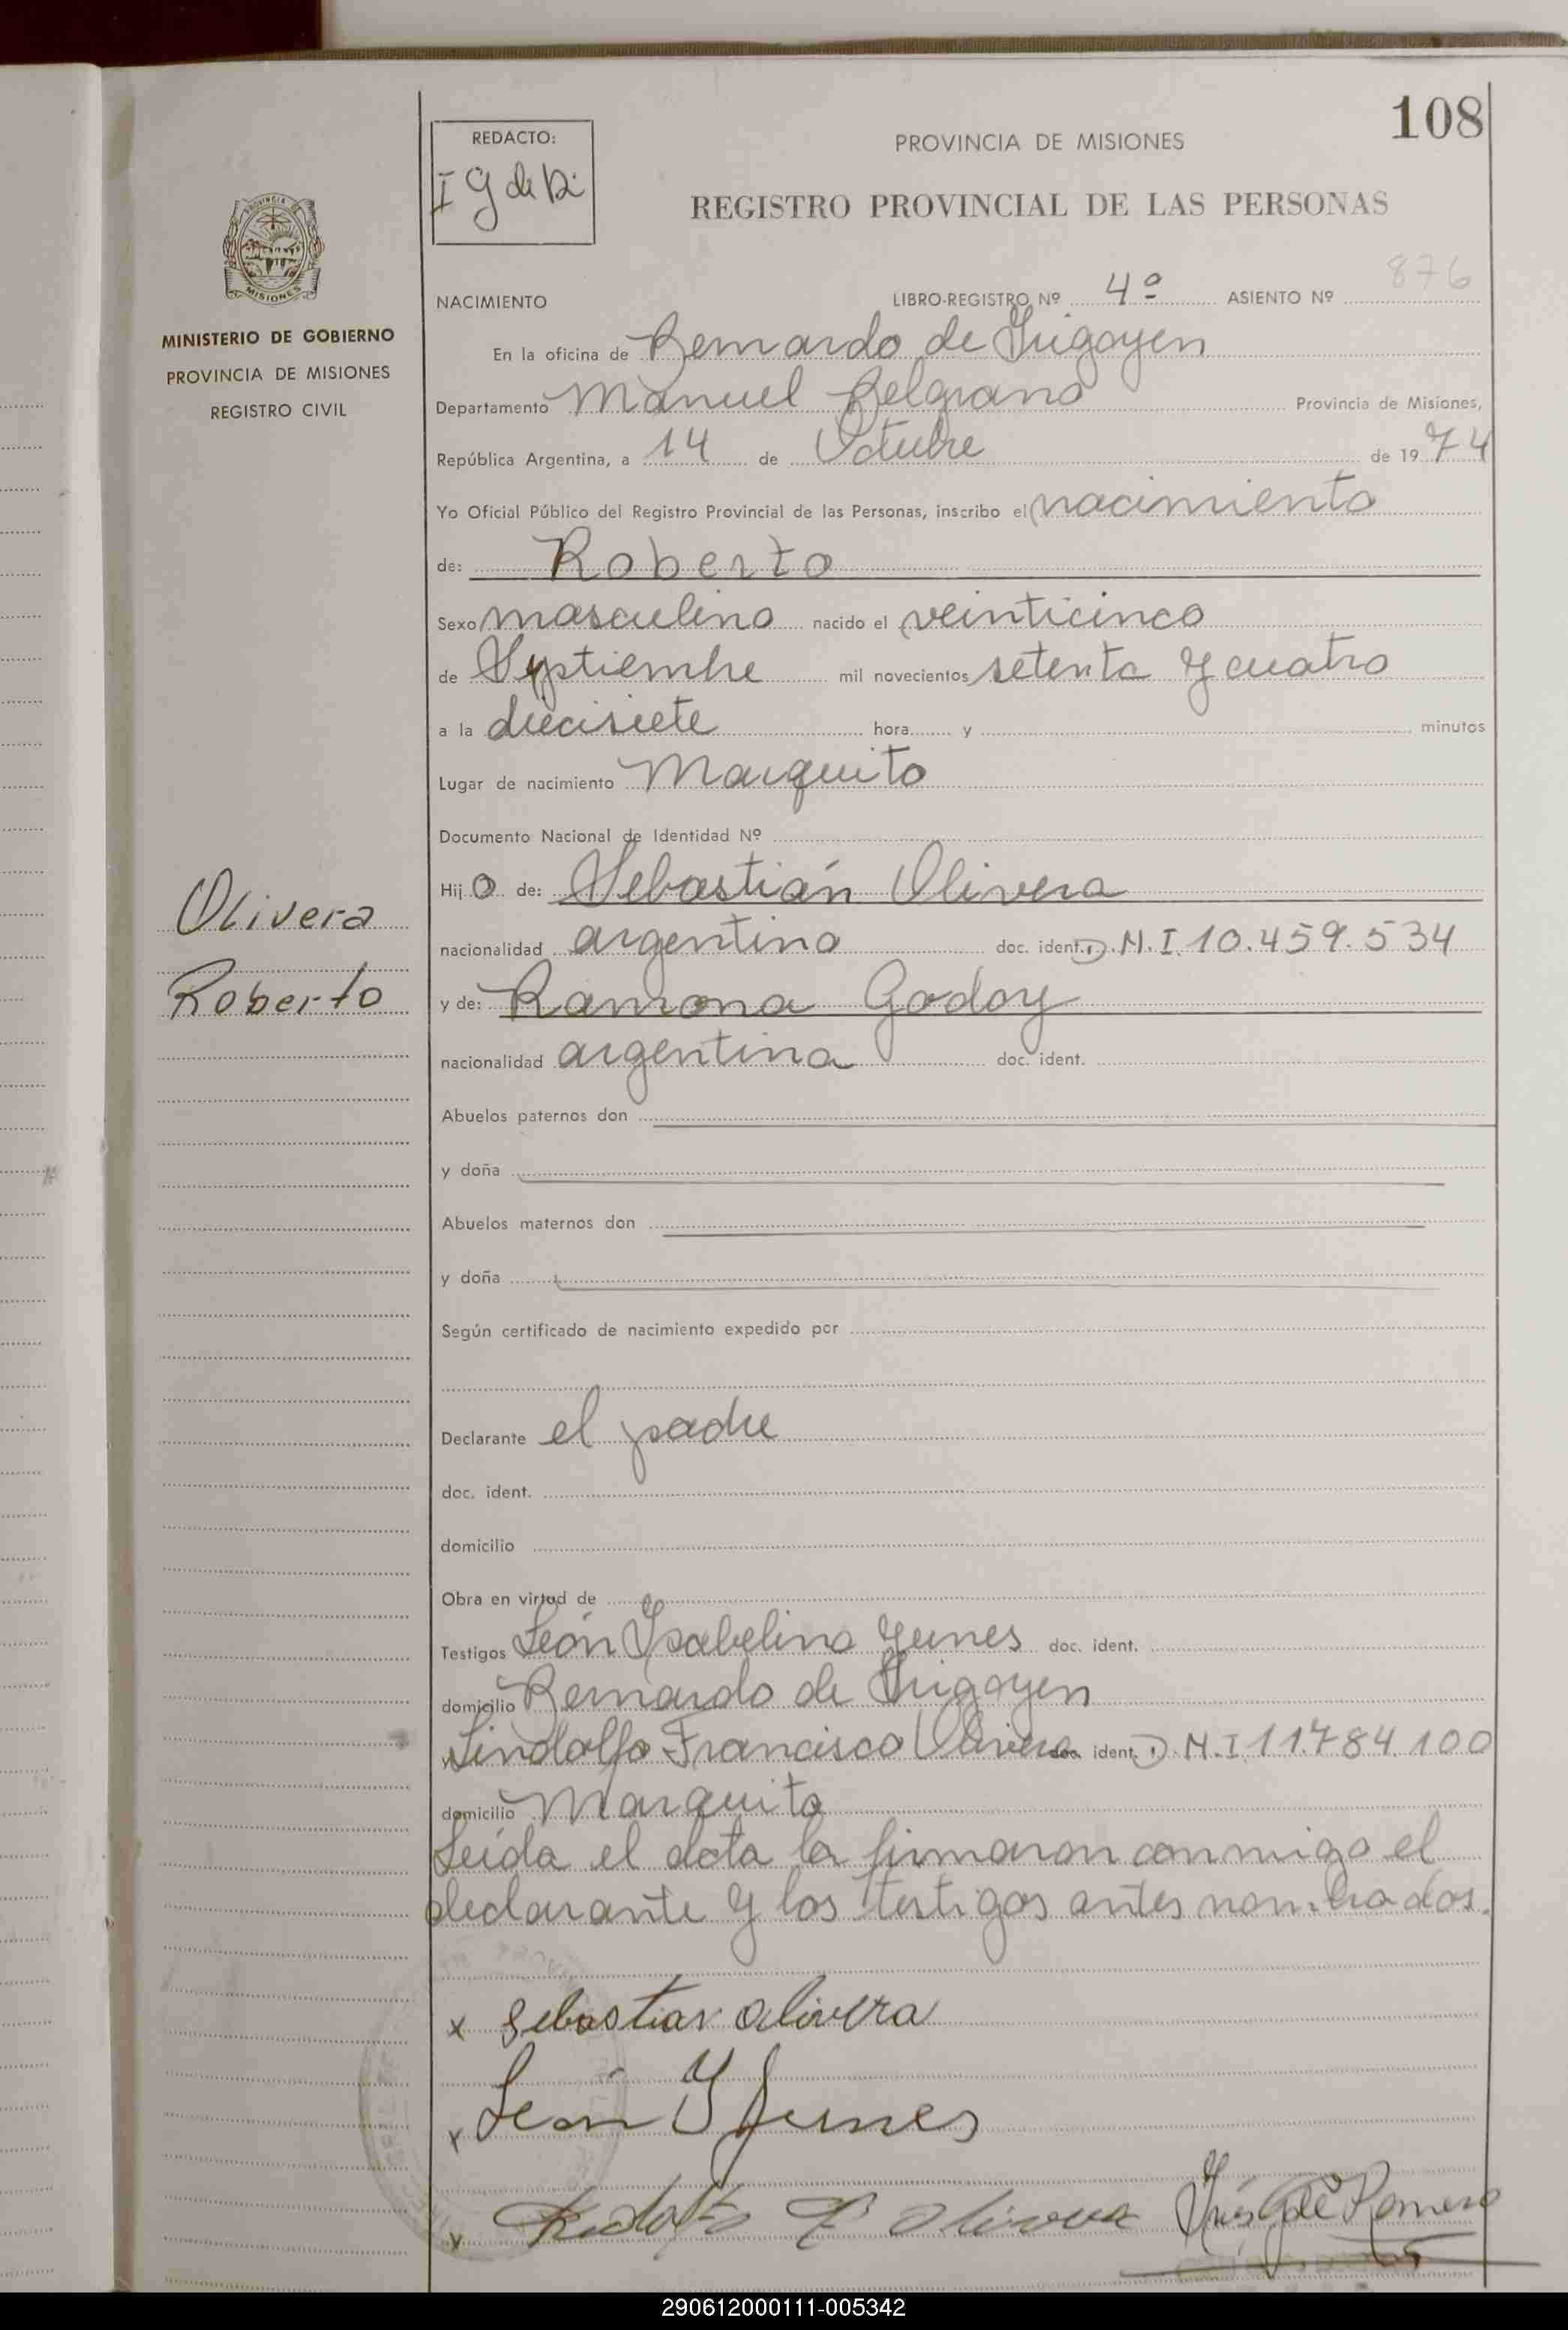 108
REDACTO:
I g de R.
PROVINCIA DE MISIONES
REGISTRO PROVINCIAL DE LAS PERSONAS
MISIONES
MINISTERIO DE GOBIERNO
PROVINCIA DE MISIONES
REGISTRO CIVIL
NACIMIENTO LIBRO-REGISTRO Nº 4º ASIENTO Nº 876
En la oficina de Bernardo de Irigoyen
Departamento Manuel Belgrano Provincia de Misiones,
República Argentina, a 14 de Octubre de 19 74
Yo Oficial Público del Registro Provincial de las Personas, inscribo el nacimiento
de: Roberto
Sexo masculino nacido el veinticinco
de Septiembre mil novecientos setenta y cuatro
a la diecisiete hora y minutos
Lugar de nacimiento Marquito
Documento Nacional de Identidad Nº
Olivera
Roberto
Hij o de: Sebastián Olivera
nacionalidad argentino doc. ident. D.N.I. 10.459.534
y de: Ramona Godoy
nacionalidad argentina doc. ident.
Abuelos paternos don
y doña
Abuelos maternos don
y doña
Según certificado de nacimiento expedido por
Declarante el padre
doc. ident.
domicilio
Obra en virtud de
Testigos León Ysabelino Yunes doc. ident.
domicilio Bernardo de Irigoyen
y Lindolfo Francisco Olivera doc. ident. D.N.I 11.784.100
domicilio Marquito
Leída el acta la firmaron conmigo el
declarante y los testigos antes nombrados.
x Sebastian Olivera
x León Y Yunes
x Lindolfo F Olivera Inés G de Romero
290612000111-005342